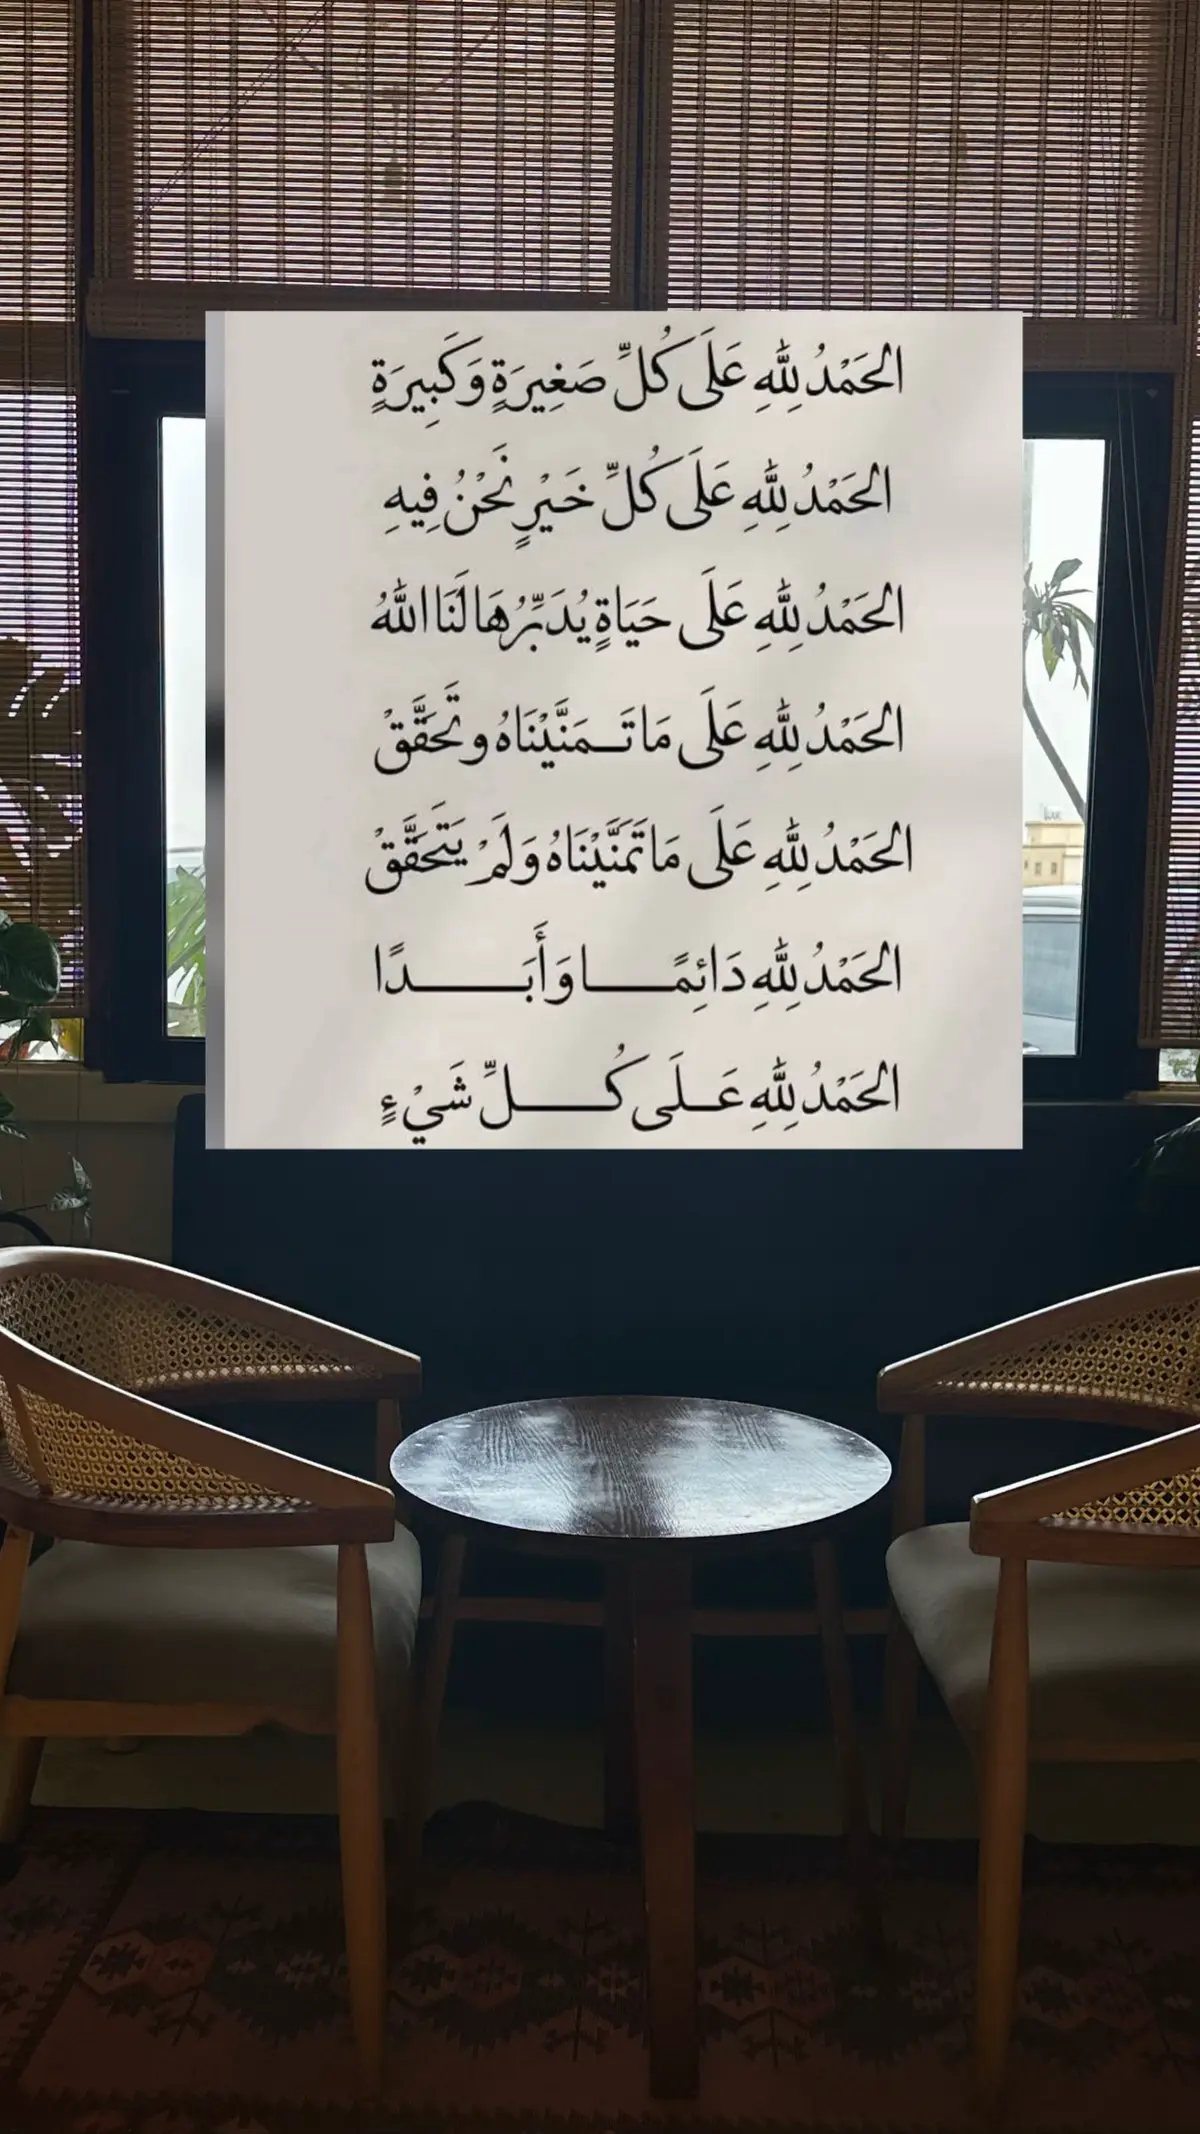 الحَمْدُ لِلّٰهِ عَلَى كُلِّ صَغِيرَةٍ وَكَبِيرَةٍ
الحَمْدُ لِلّٰهِ عَلَى كُلِّ خَيْرٍ نَحْنُ فِيهِ
الحَمْدُ لِلّٰهِ عَلَى حَيَاةٍ يُدَبِّرُهَا لَنَا اللّٰهُ
الحَمْدُ لِلّٰهِ عَلَى مَا تَـمَنَّيْنَاهُ وتَحَقَّقْ
الحَمْدُ لِلّٰهِ عَلَى مَا تَمَنَّيْنَاهُ وَلَمْ يَتَحَقَّقْ
الحَمْدُ لِلّٰهِ دَائِمًـــا وَأَبَـــــدًا
الحَمْدُ لِلّٰهِ عَـلَى كُــــلِّ شَيْءٍ